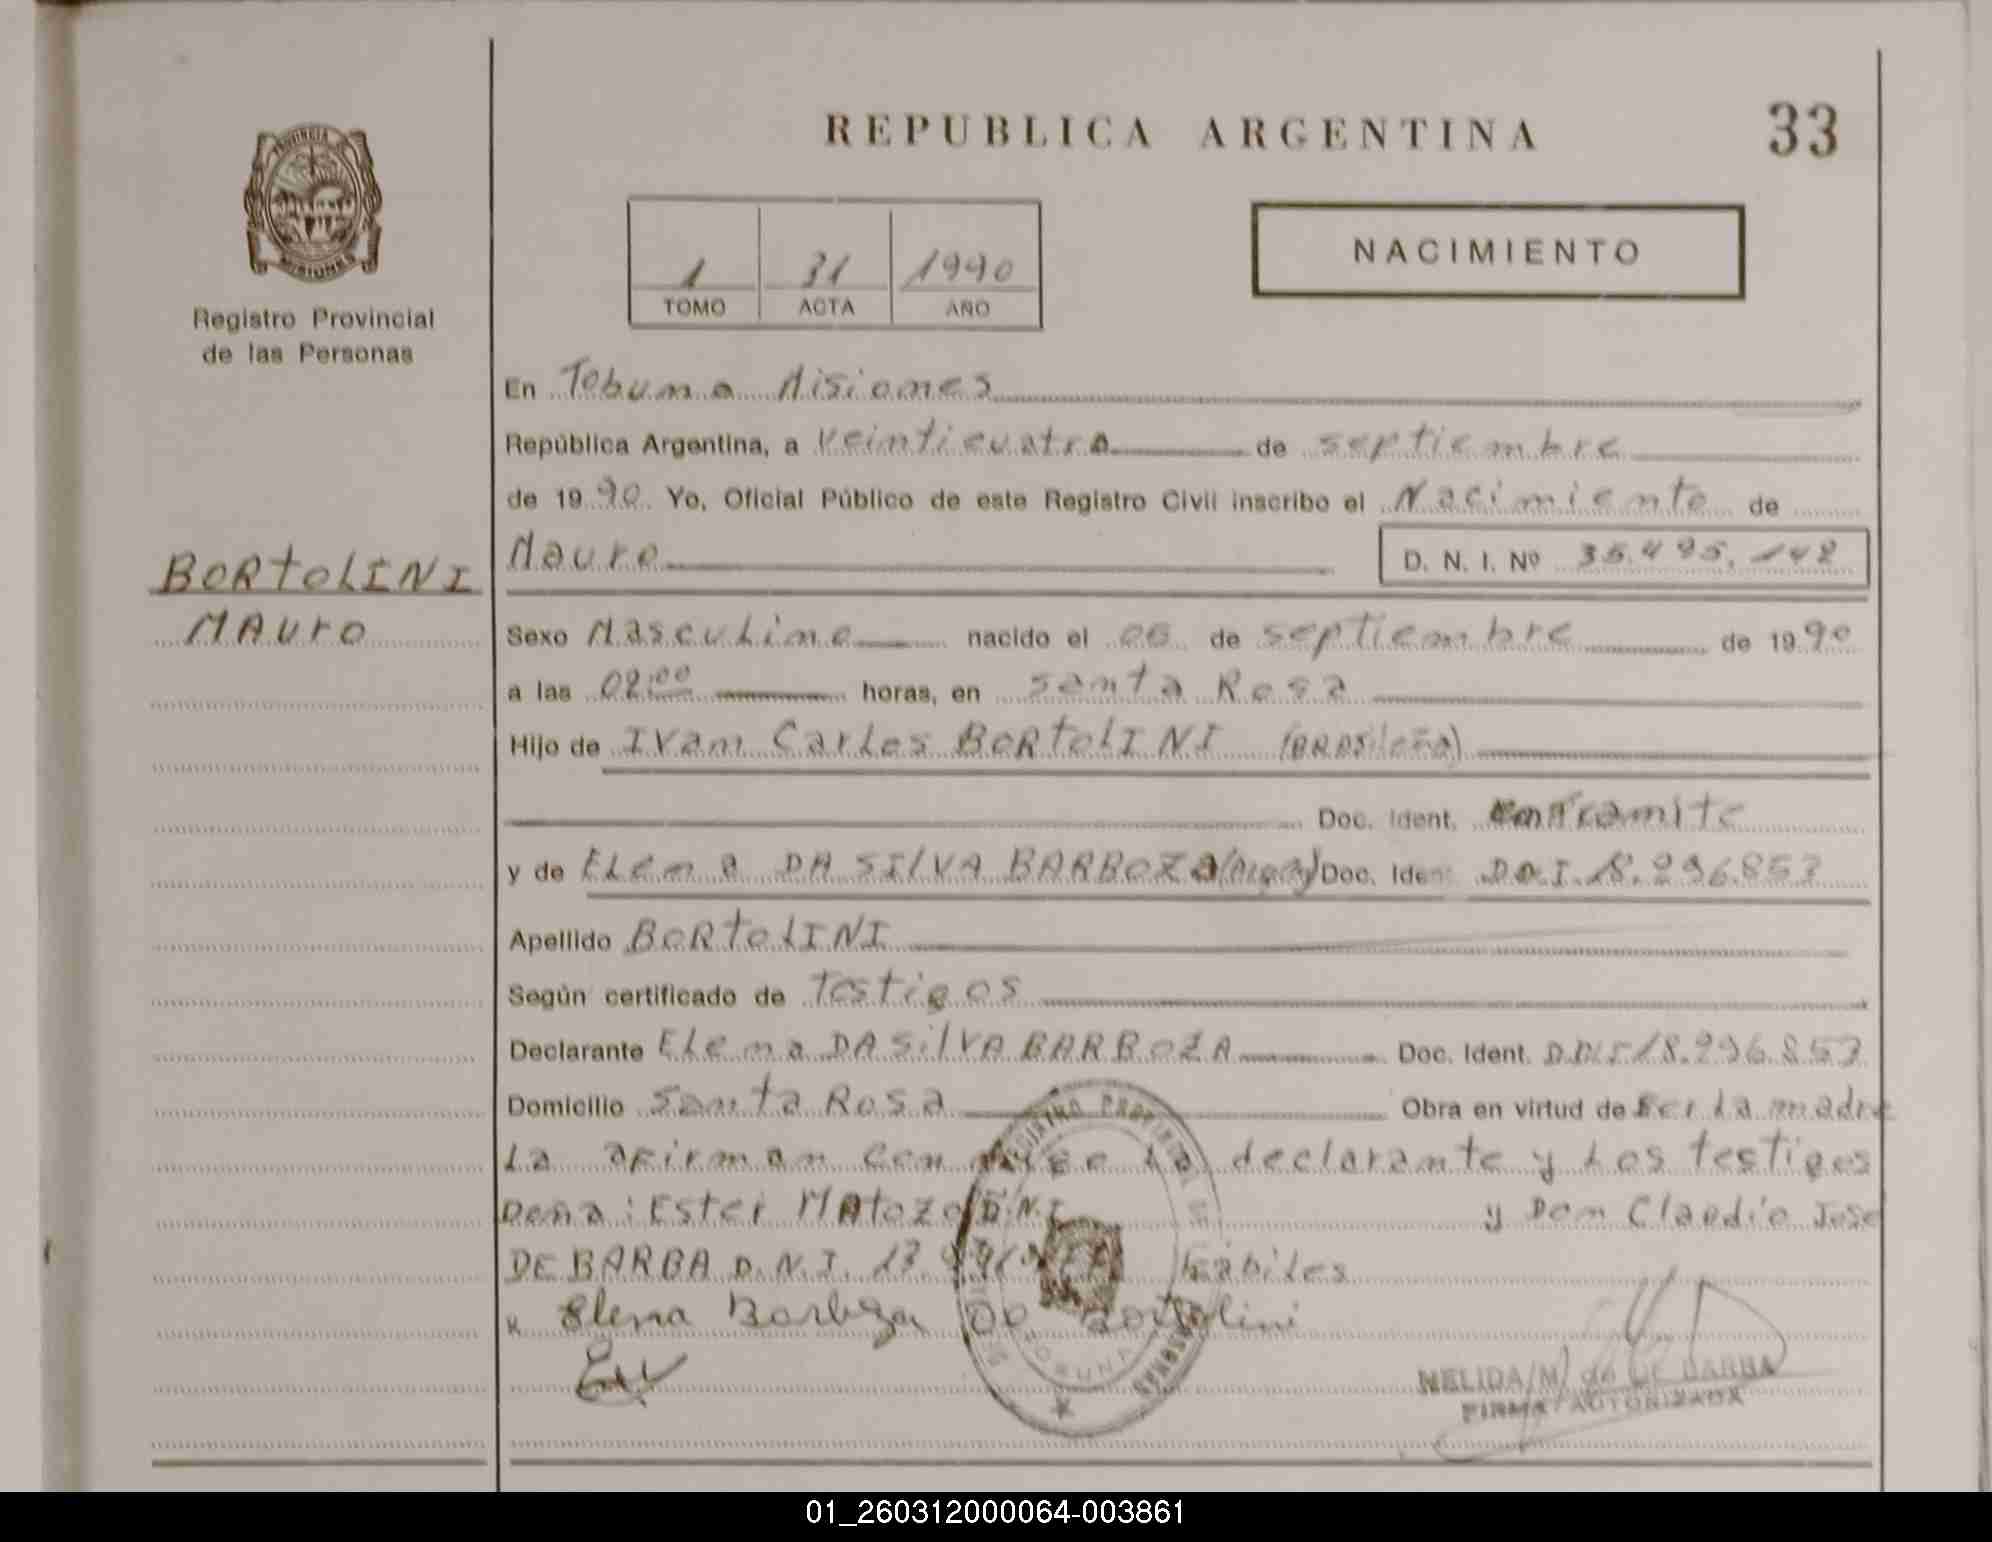 REPUBLICA ARGENTINA
33
PROVINCIA
MISIONES
Registro Provincial
de las Personas
1 31 1990
TOMO ACTA AÑO
NACIMIENTO
En Tobuna Misiones
República Argentina, a veinticuatro de septiembre
de 1990. Yo, Oficial Público de este Registro Civil inscribo el Nacimiento de
Mauro D. N. I. Nº 35.495.142
BORtoLINI
MAuro
Sexo Masculino nacido el 06 de septiembre de 1990
a las 02:00 horas, en Santa Rosa
Hijo de Ivan Carlos BORtoLINI (BRASileña)
Doc. Ident. en Tramite
y de Elena DA SILVA BARBOZA (Arga) Doc. Iden D.N.I. 18.296.853
Apellido BORtoLINI
Según certificado de Testigos
Declarante Elena DA SilVA BARBOZA Doc. Ident. D.N.I 18.296.853
Domicilio Santa Rosa Obra en virtud de Ser La madre
La afirman con La declarante y Los testigos
Doña: Ester MAtozo D.N.I. y Don Claudio Jose
DE BARBA D.N.I. 13 hábiles
x Elena Barboza De Bortolini
NELIDA M de DE BARBA
FIRMA AUTORIZADA
01_260312000064-003861